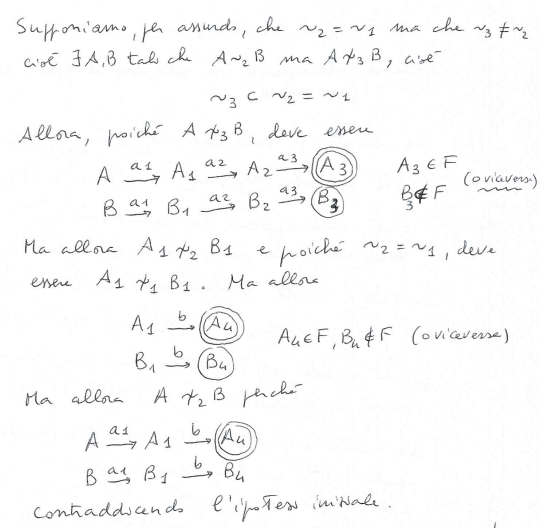 Supponiamo, per assurdo, che ~₂ = ~₁ ma che ~₃ ≠ ~₂
cioè ∃A,B tali che A ~₂ B ma A ≁₃ B, cioè
~₃ ⊂ ~₂ = ~₁
Allora, poiché A ≁₃ B, deve essere
A –a1→ A1 –a2→ A2 –a3→ A3 A3 ∈ F
B –a1→ B1 –a2→ B2 –a3→ B3 B3 ∉ F (o viceversa)
Ma allora A1 ≁₂ B1 e poiché ~₂ = ~₁, deve
essere A1 ≁₁ B1. Ma allora
A1 –b→ A4 A4 ∈ F, B4 ∉ F (o viceversa)
B1 –b→ B4
Ma allora A ≁₂ B perché
A –a1→ A1 –b→ A4
B –a1→ B1 –b→ B4
contraddicendo l'ipotesi iniziale.